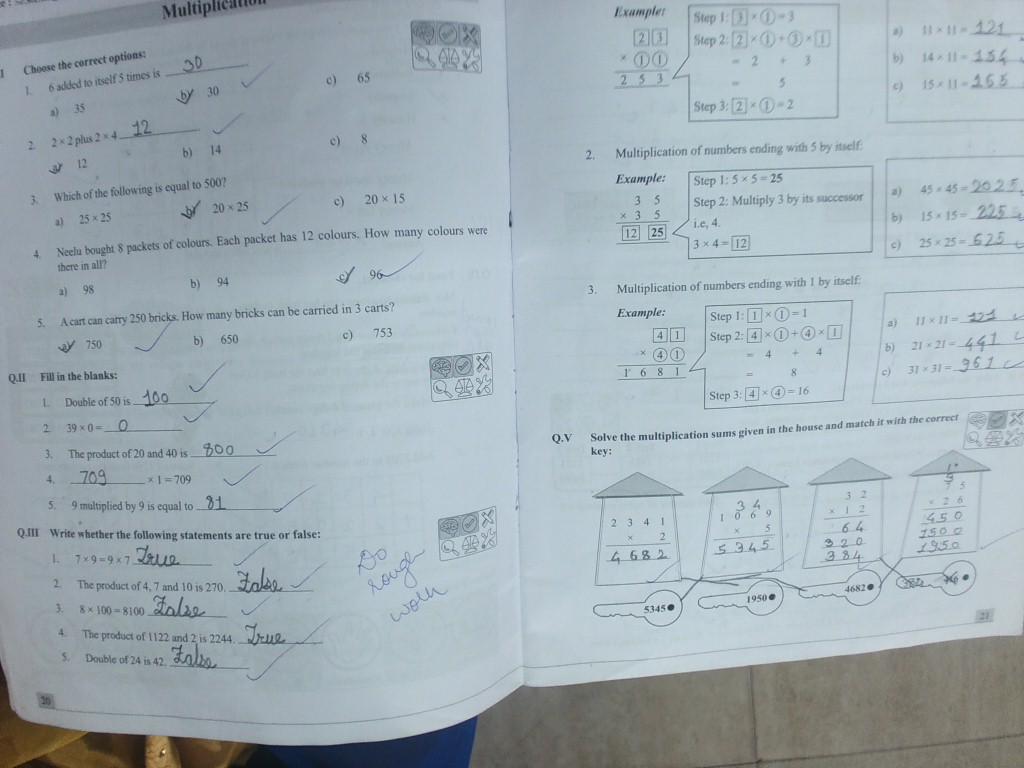 Multiplication
Choose the correct options:
1. 6 added to itself 5 times is 30
a) 35 b) 30 c) 65
2. 2 × 2 plus 2 × 4 12
a) 12 b) 14 c) 8
3. Which of the following is equal to 500?
a) 25 × 25 b) 20 × 25 c) 20 × 15
4. Neelu bought 8 packets of colours. Each packet has 12 colours. How many colours were
there in all?
a) 98 b) 94 c) 96
5. A cart can carry 250 bricks. How many bricks can be carried in 3 carts?
a) 750 b) 650 c) 753
Q.II Fill in the blanks:
1. Double of 50 is 100
2. 39 × 0 = 0
3. The product of 20 and 40 is 800
4. 709 × 1 = 709
5. 9 multiplied by 9 is equal to 81
Q.III Write whether the following statements are true or false:
1. 7 × 9 = 9 × 7 True
2. The product of 4, 7 and 10 is 270. False
3. 8 × 100 = 8100 False
4. The product of 1122 and 2 is 2244. True
5. Double of 24 is 42. False
Do
rouge
work
20
Example:
2 3
× 1 1
2 5 3
Step 1: 3 × 1 = 3
Step 2: 2 × 1 + 3 × 1
= 2 + 3
= 5
Step 3: 2 × 1 = 2
a) 11 × 11 = 121
b) 14 × 11 = 154
c) 15 × 11 = 165
2. Multiplication of numbers ending with 5 by itself:
Example:
3 5
× 3 5
12 25
Step 1: 5 × 5 = 25
Step 2: Multiply 3 by its successor
i.e, 4.
3 × 4 = 12
a) 45 × 45 = 2025
b) 15 × 15 = 225
c) 25 × 25 = 625
3. Multiplication of numbers ending with 1 by itself:
Example:
4 1
× 4 1
1 6 8 1
Step 1: 1 × 1 = 1
Step 2: 4 × 1 + 4 × 1
= 4 + 4
= 8
Step 3: 4 × 4 = 16
a) 11 × 11 = 121
b) 21 × 21 = 441
c) 31 × 31 = 961
Q.V Solve the multiplication sums given in the house and match it with the correct
key:
2 3 4 1
× 2
4 6 8 2
3 4
1 0 6 9
× 5
5 3 4 5
3 2
× 1 2
6 4
3 2 0
3 8 4
7 5
× 2 6
4 5 0
1500
1950
5345
1950
4682
21